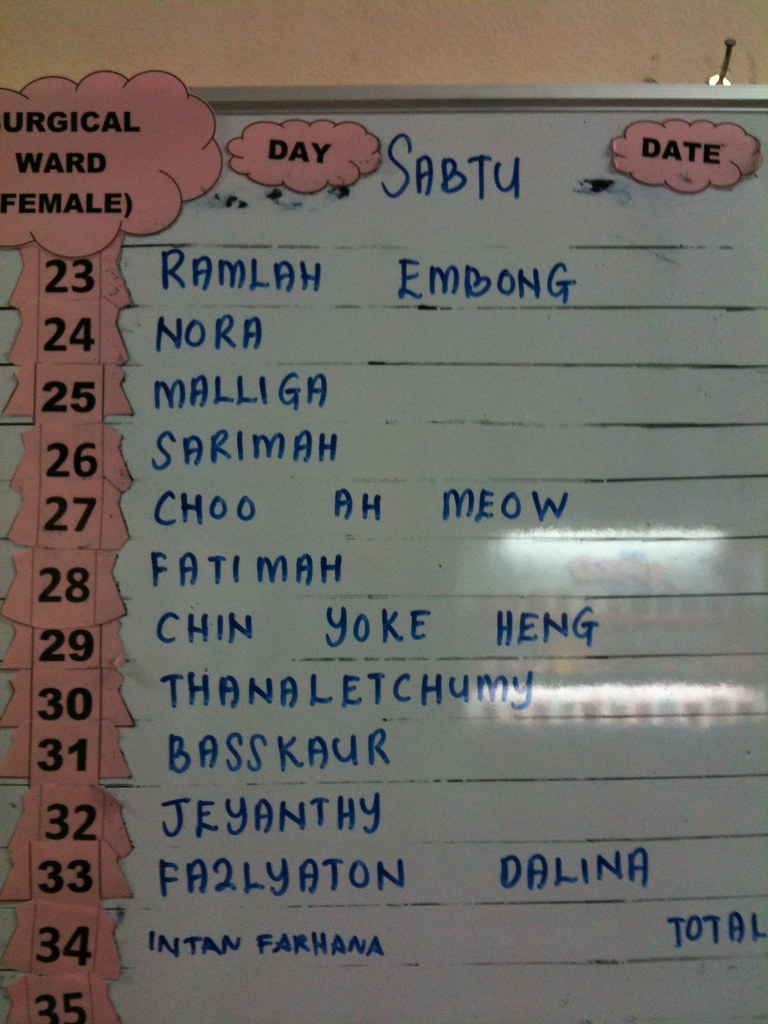 SURGICAL
WARD
(FEMALE)
DAY SABTU DATE
23 RAMLAH EMBONG
24 NORA
25 MALLIGA
26 SARIMAH
27 CHOO AH MEOW
28 FATIMAH
29 CHIN YOKE HENG
30 THANALETCHUMY
31 BASSKAUR
32 JEYANTHY
33 FA2LYATON DALINA
34 INTAN FARHANA TOTAL
35